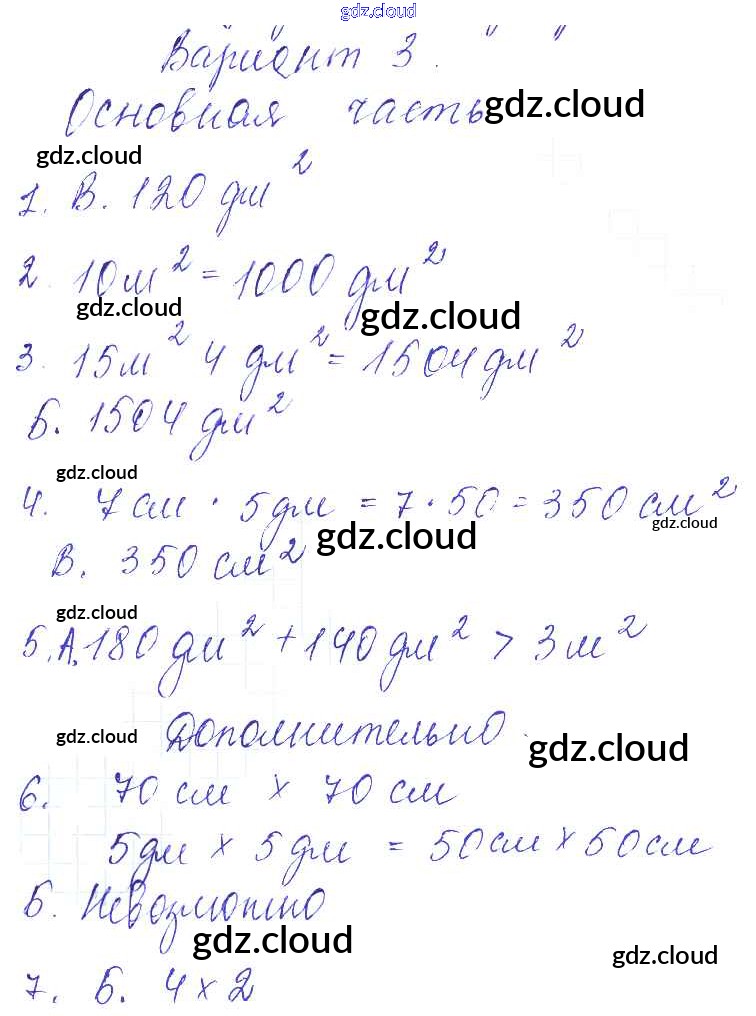 gdz.cloud
Вариант 3. " "
Основная часть gdz.cloud
gdz.cloud
1. В. 120 дм²
2. 10 м² = 1000 дм²
gdz.cloud gdz.cloud
3. 15 м² 4 дм² = 1504 дм²
Б. 1504 дм²
gdz.cloud
4. 7 см · 5 дм = 7 · 50 = 350 см²
gdz.cloud gdz.cloud
В. 350 см²
gdz.cloud
5. А. 180 дм² + 140 дм² > 3 м²
Дополнительно
gdz.cloud gdz.cloud
6. 70 см × 70 см
5 дм × 5 дм = 50 см × 50 см
Б. Невозможно
gdz.cloud gdz.cloud
7. Б. 4 × 2